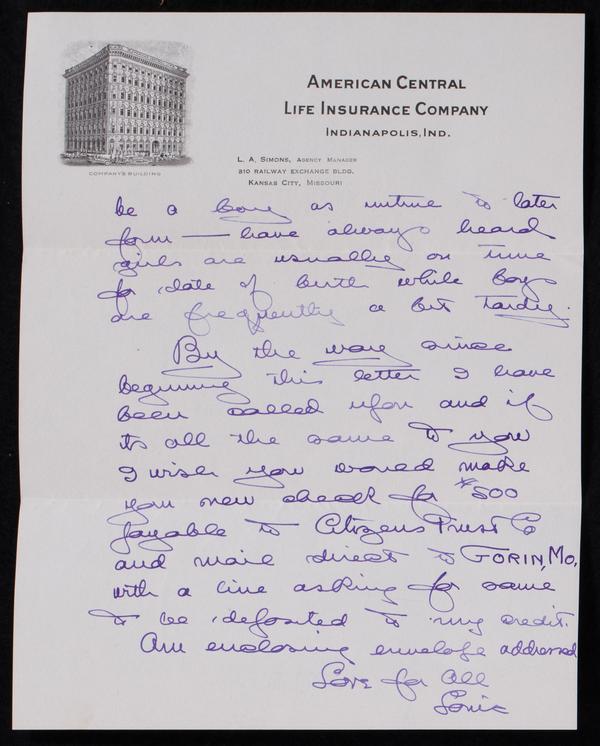 AMERICAN CENTRAL
LIFE INSURANCE COMPANY
INDIANAPOLIS, IND.
L. A. SIMONS, AGENCY MANAGER
310 RAILWAY EXCHANGE BLDG.
KANSAS CITY, MISSOURI
COMPANY'S BUILDING
be a boy as mine to later
form — have always heard
girls are usually on time
for date of birth while boys
are frequently a bit tardy.
By the way since
beginning this letter I have
been called upon and if
its all the same to you
I wish you would make
your new check for $500
payable to Citizens Trust Co
and mail direct to GORIN, MO.
with a line asking for same
to be deposited to my credit.
Am enclosing envelope addressed
Love for all